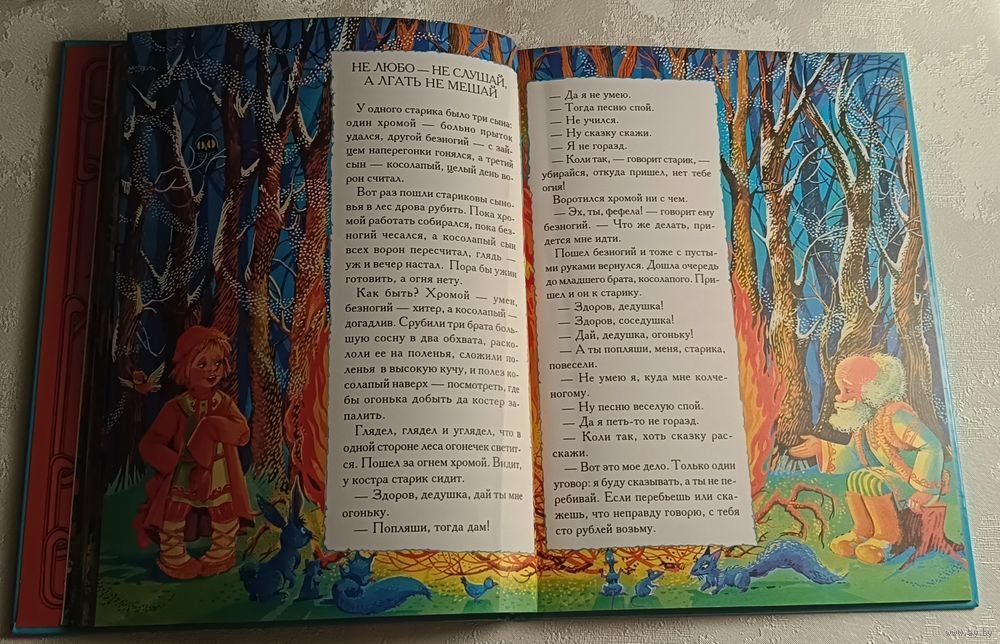 НЕ ЛЮБО — НЕ СЛУШАЙ,
А ЛГАТЬ НЕ МЕШАЙ
У одного старика было три сына:
один хромой — больно прыток
удался, другой безногий — с зай-
цем наперегонки гонялся, а третий
сын — косолапый, целый день во-
рон считал.
Вот раз пошли стариковы сыно-
вья в лес дрова рубить. Пока хро-
мой работать собирался, пока без-
ногий чесался, а косолапый сын
всех ворон пересчитал, глядь —
уж и вечер настал. Пора бы ужин
готовить, а огня нету.
Как быть? Хромой — умен,
безногий — хитер, а косолапый —
догадлив. Срубили три брата боль-
шую сосну в два обхвата, раско-
лоли ее на поленья, сложили по-
ленья в высокую кучу, и полез ко-
солапый наверх — посмотреть, где
бы огонька добыть да костер за-
палить.
Глядел, глядел и углядел, что в
одной стороне леса огонечек светит-
ся. Пошел за огнем хромой. Видит,
у костра старик сидит.
— Здоров, дедушка, дай ты мне
огоньку.
— Попляши, тогда дам!
— Да я не умею.
— Тогда песню спой.
— Не учился.
— Ну сказку скажи.
— Я не горазд.
— Коли так, — говорит старик, —
убирайся, откуда пришел, нет тебе
огня!
Воротился хромой ни с чем.
— Эх, ты, фефела! — говорит ему
безногий. — Что же делать, при-
дется мне идти.
Пошел безногий и тоже с пусты-
ми руками вернулся. Дошла очередь
до младшего брата, косолапого. При-
шел и он к старику.
— Здоров, дедушка!
— Здоров, соседушка!
— Дай, дедушка, огоньку!
— А ты попляши, меня, старика,
повесели.
— Не умею я, куда мне колче-
ногому.
— Ну песню веселую спой.
— Да я петь-то не горазд.
— Коли так, хоть сказку рас-
скажи.
— Вот это мое дело. Только один
уговор: я буду сказывать, а ты не пе-
ребивай. Если перебьешь или ска-
жешь, что неправду говорю, с тебя
сто рублей возьму.
www.ay.by